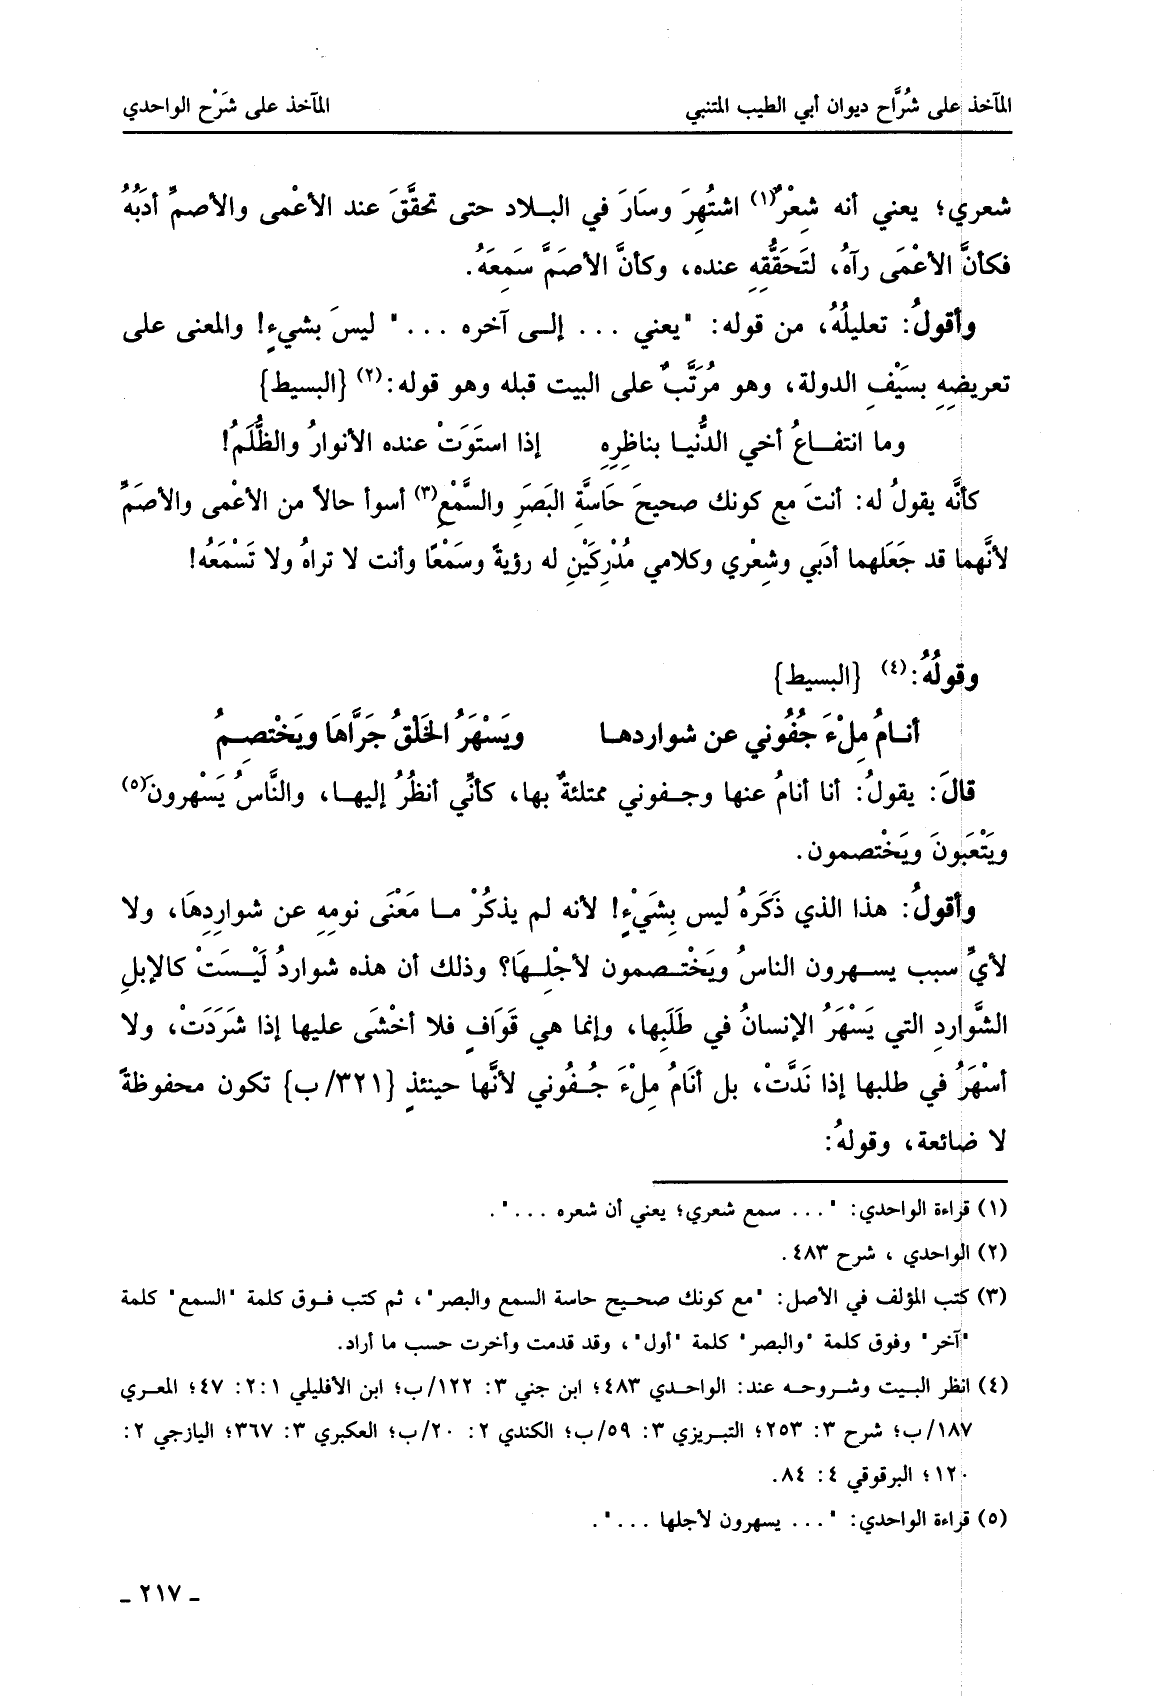 المآخذ على شُرَّاح ديوان أبي الطيب المتنبي
المآخذ على شَرْح الواحدي
شعري؛ يعني أنه شِعْرٌ(١) اشتُهِرَ وسَارَ في البلاد حتى تحقَّقَ عند الأعْمى والأصمِّ أدَبُهُ
فكأنَّ الأعْمَى رآهُ، لتَحَقُّقِهِ عنده، وكأنَّ الأصَمَّ سَمِعَهُ.
وأقولُ: تعليلُهُ، من قوله: "يعني ... إلى آخره ..." ليسَ بشيءٍ! والمعنى على
تعريضِهِ بسَيْفِ الدولة، وهو مُرَتَّبٌ على البيت قبله وهو قوله:(٢) {البسيط}
وما انتفاعُ أخي الدُّنيا بناظرِهِ إذا استَوَتْ عنده الأنوارُ والظُّلَمُ!
كأنَّه يقولُ له: أنتَ مع كونك صحيحَ حَاسَّةِ البَصَرِ والسَّمْعِ(٣) أسوأ حالاً من الأعْمى والأصَمِّ
لأنَّهما قد جَعَلهما أدَبي وشِعْري وكلامي مُدْرِكَيْنِ له رؤيةً وسَمْعًا وأنت لا تراهُ ولا تَسْمَعُه!
وقولُهُ:(٤) {البسيط}
أنامُ مِلْءَ جُفُوني عن شواردها ويَسْهَرُ الخَلْقُ جَرَّاهَا ويَخْتصِمُ
قالَ: يقولُ: أنا أنامُ عنها وجفوني ممتلئةٌ بها، كأنِّي أنظُرُ إليها، والنَّاسُ يَسْهرونَ(٥)
ويَتْعَبونَ ويَخْتصمون.
وأقولُ: هذا الذي ذَكَرَهُ ليس بشَيْءٍ! لأنه لم يذكُرْ ما مَعْنَى نومِهِ عن شواردِهَا، ولا
لأيِّ سبب يسهرون الناسُ ويَخْتصمون لأجْلِهَا؟ وذلك أن هذه شواردُ لَيْسَتْ كالإبلِ
الشَّواردِ التي يَسْهَرُ الإنسانُ في طَلَبِها، وإنما هي قَوَافٍ فلا أخْشَى عليها إذا شَرَدَتْ، ولا
أسْهَرُ في طلبها إذا نَدَّتْ، بل أنَامُ مِلْءَ جُفُوني لأنَّها حينئذٍ {٣٢١/ب} تكون محفوظةً
لا ضائعة، وقولهُ:
(١) قراءة الواحدي: "... سمع شعري؛ يعني أن شعره ...".
(٢) الواحدي ، شرح ٤٨٣.
(٣) كتب المؤلف في الأصل: "مع كونك صحيح حاسة السمع والبصر"، ثم كتب فوق كلمة "السمع" كلمة
"آخر" وفوق كلمة "والبصر" كلمة "أول"، وقد قدمت وأخرت حسب ما أراد.
(٤) انظر البيت وشروحه عند: الواحدي ٤٨٣؛ ابن جني ٣: ١٢٢/ب؛ ابن الأفليلي ٢:١: ٤٧؛ المعري
١٨٧/ب؛ شرح ٣: ٢٥٣؛ التبريزي ٣: ٥٩/ب؛ الكندي ٢: ٢٠/ب؛ العكبري ٣: ٣٦٧؛ اليازجي ٢:
١٢٠؛ البرقوقي ٤: ٨٤.
(٥) قراءة الواحدي: "... يسهرون لأجلها ...".
ـ ٢١٧ ـ